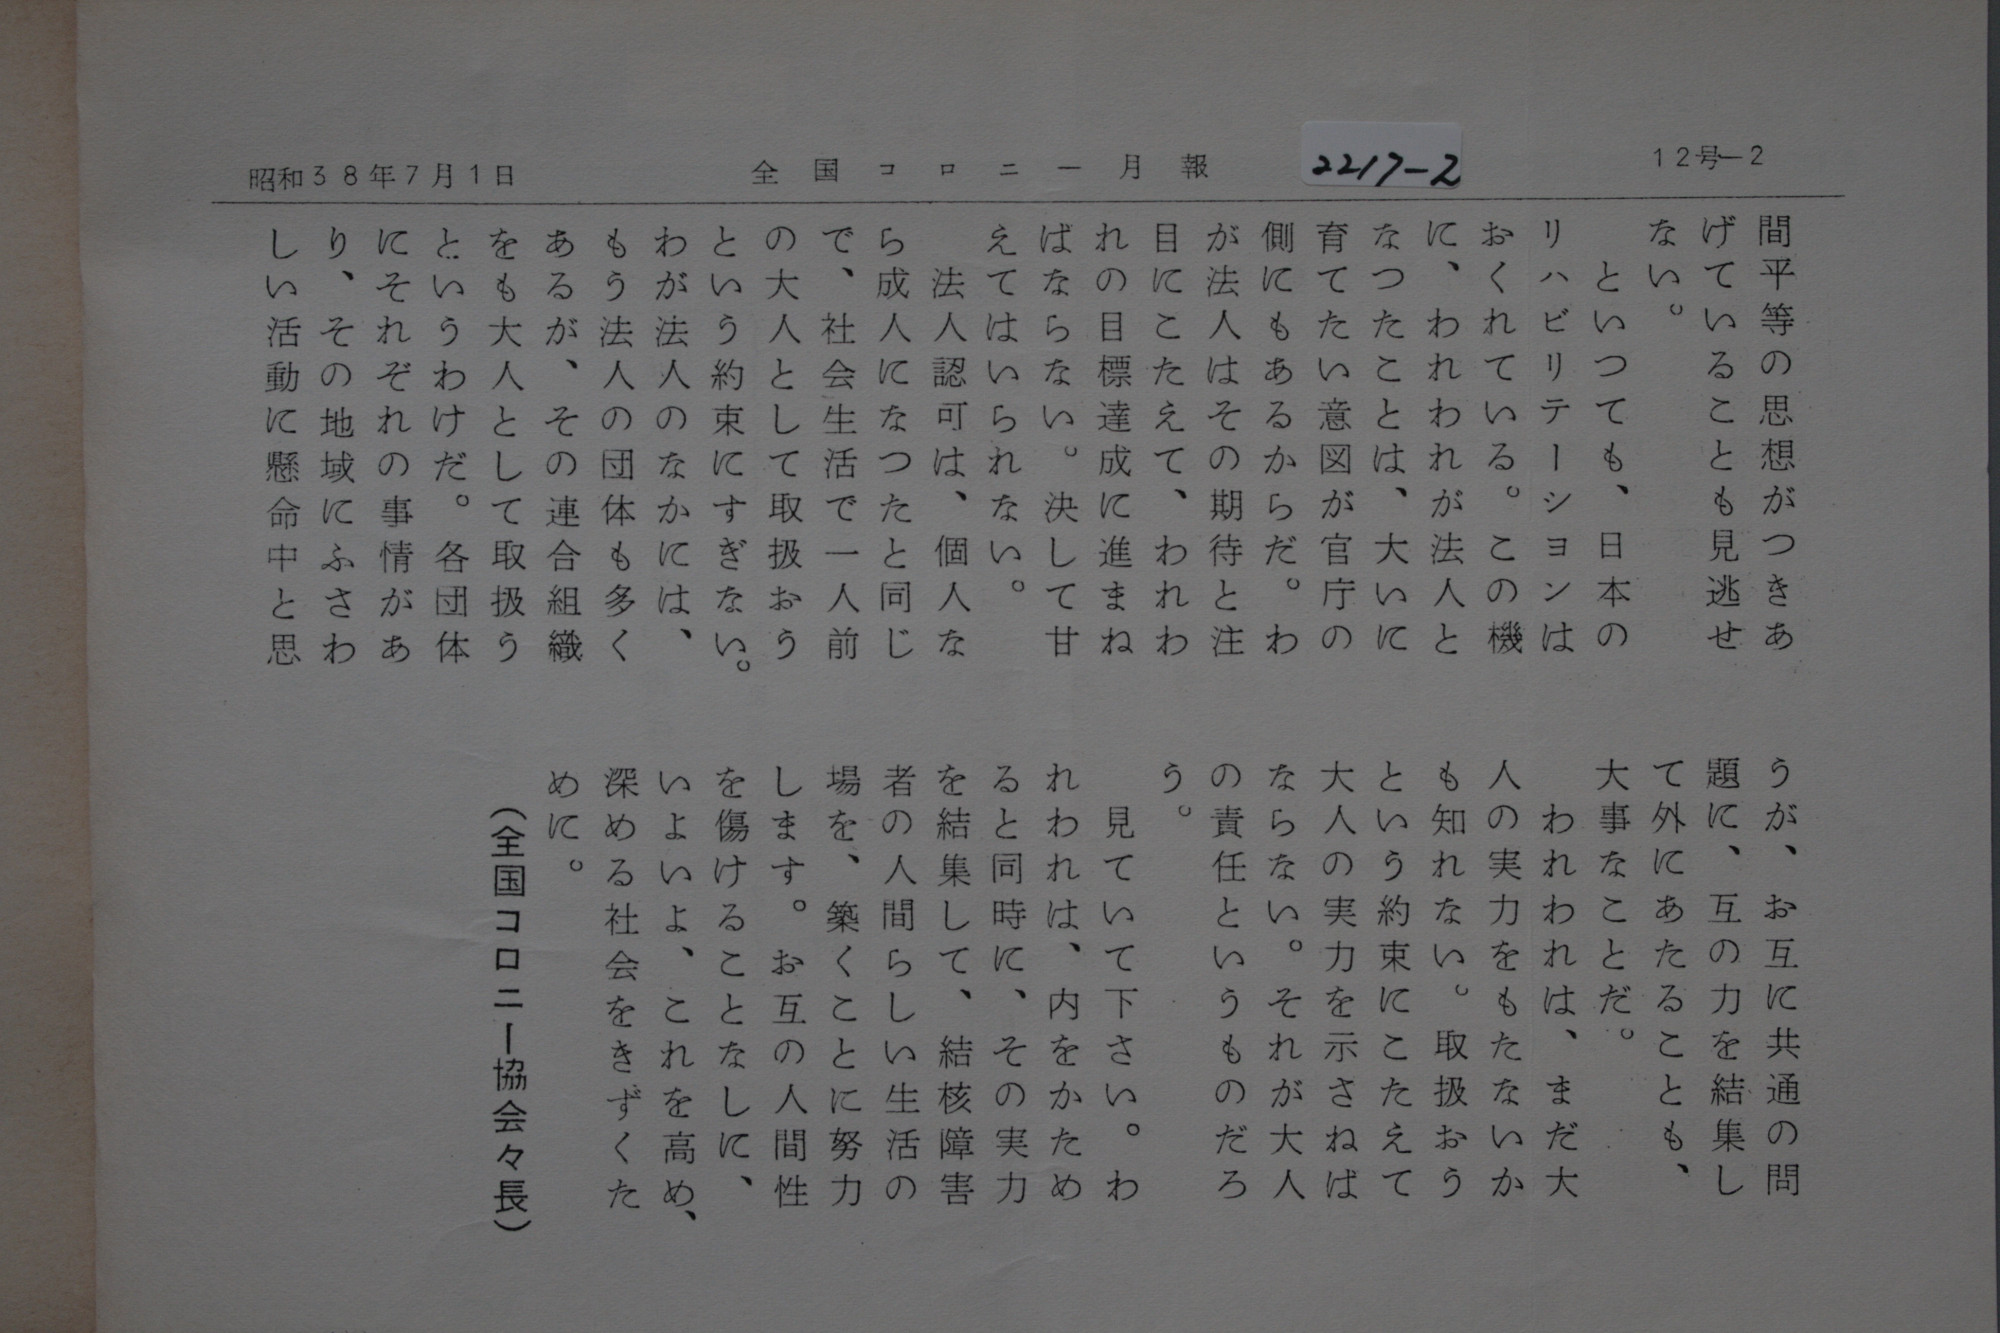 昭和38年7月1日
全国コロニー月報
2217-2
12号-2
間平等の思想がつきあ
げていることも見逃せ
ない。
といつても、日本の
リハビリテーションは
おくれている。この機
に、われわれが法人と
なつたことは、大いに
育てたい意図が官庁の
側にもあるからだ。わ
が法人はその期待と注
目にこたえて、われわ
れの目標達成に進まね
ばならない。決して甘
えてはいられない。
法人認可は、個人な
ら成人になつたと同じ
で、社会生活で一人前
の大人として取扱おう
という約束にすぎない。
わが法人のなかには、
もう法人の団体も多く
あるが、その連合組織
をも大人として取扱う
というわけだ。各団体
にそれぞれの事情があ
り、その地域にふさわ
しい活動に懸命中と思
うが、お互に共通の問
題に、互の力を結集し
て外にあたることも、
大事なことだ。
われわれは、まだ大
人の実力をもたないか
も知れない。取扱おう
という約束にこたえて
大人の実力を示さねば
ならない。それが大人
の責任というものだろ
う。
見ていて下さい。わ
れわれは、内をかため
ると同時に、その実力
を結集して、結核障害
者の人間らしい生活の
場を、築くことに努力
します。お互の人間性
を傷けることなしに、
いよいよ、これを高め、
深める社会をきずくた
めに。
（全国コロニー協会々長）